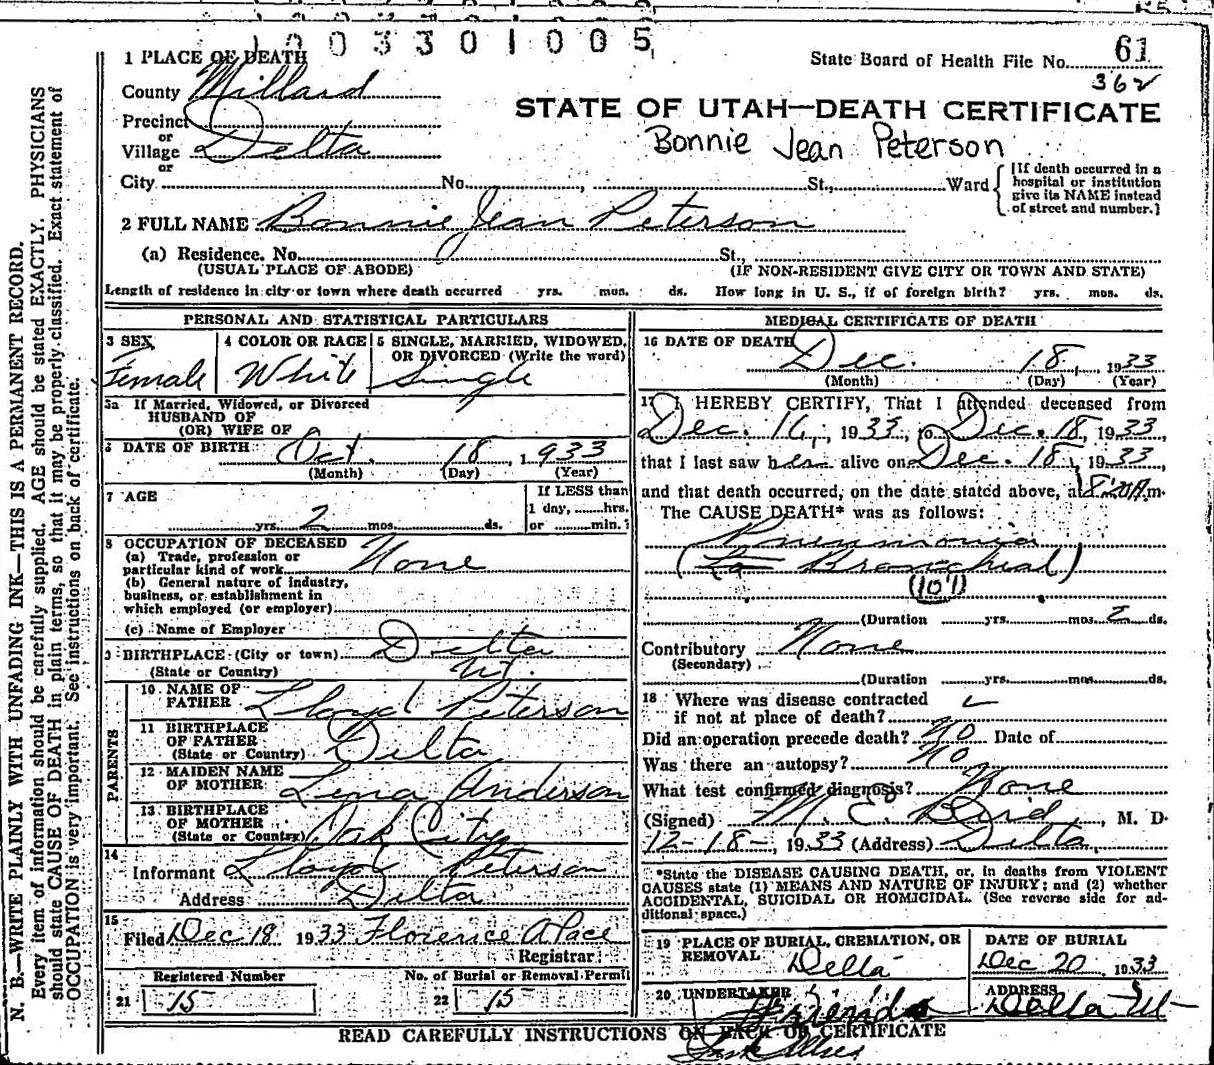 1003301005
1 PLACE OF DEATH
State Board of Health File No. 61
362
County Millard
STATE OF UTAH—DEATH CERTIFICATE
Precinct
or
Village Delta
or
Bonnie Jean Peterson
City No. , St., Ward
{If death occurred in a hospital or institution give its NAME instead of street and number.}
2 FULL NAME Bonnie Jean Peterson
(a) Residence. No. St.,
(USUAL PLACE OF ABODE) (IF NON-RESIDENT GIVE CITY OR TOWN AND STATE)
Length of residence in city or town where death occurred yrs. mos. ds. How long in U. S., if of foreign birth? yrs. mos. ds.
PERSONAL AND STATISTICAL PARTICULARS
3 SEX Female
4 COLOR OR RACE White
5 SINGLE, MARRIED, WIDOWED, OR DIVORCED (Write the word) Single
5a If Married, Widowed, or Divorced
HUSBAND OF
(OR) WIFE OF
6 DATE OF BIRTH Oct. 18, 1933
(Month) (Day) (Year)
7 AGE
yrs. 2 mos. ds.
If LESS than
1 day, hrs.
or min.?
8 OCCUPATION OF DECEASED
(a) Trade, profession or
particular kind of work None
(b) General nature of industry,
business, or establishment in
which employed (or employer)
(c) Name of Employer
9 BIRTHPLACE (City or town) Delta
(State or Country) Ut.
PARENTS
10 NAME OF
FATHER Lloyd Peterson
11 BIRTHPLACE
OF FATHER
(State or Country) Delta
12 MAIDEN NAME
OF MOTHER Lena Anderson
13 BIRTHPLACE
OF MOTHER
(State or Country) Oak City
14
Informant Lloyd Peterson
Address Delta
15
Filed Dec 18 1933 Florence A Pace
Registrar
Registered Number No. of Burial or Removal Permit
21 15 22 15
MEDICAL CERTIFICATE OF DEATH
16 DATE OF DEATH
Dec. 18, 1933
(Month) (Day) (Year)
17 I HEREBY CERTIFY, That I attended deceased from
Dec. 16, 1933, to Dec. 18, 1933,
that I last saw her alive on Dec. 18, 1933,
and that death occurred, on the date stated above, at 8:20 A.m.
The CAUSE DEATH* was as follows:
Pneumonia
( Bronchial)
(107)
(Duration yrs. mos. 2 ds.
Contributory None
(Secondary)
(Duration yrs. mos. ds.
18 Where was disease contracted
if not at place of death?
Did an operation precede death? No Date of
Was there an autopsy? No
What test confirmed diagnosis? None
(Signed) M. E. Bird, M. D.
12-18-, 1933 (Address) Delta,
*State the DISEASE CAUSING DEATH, or, in deaths from VIOLENT
CAUSES state (1) MEANS AND NATURE OF INJURY; and (2) whether
ACCIDENTAL, SUICIDAL OR HOMICIDAL. (See reverse side for ad-
ditional space.)
19 PLACE OF BURIAL, CREMATION, OR
REMOVAL Delta
DATE OF BURIAL
Dec 20, 1933
20 UNDERTAKER Friends
ADDRESS
Delta Ut
READ CAREFULLY INSTRUCTIONS ON BACK OF CERTIFICATE
N. B.—WRITE PLAINLY WITH UNFADING INK—THIS IS A PERMANENT RECORD.
Every item of information should be carefully supplied. AGE should be stated EXACTLY. PHYSICIANS
should state CAUSE OF DEATH in plain terms, so that it may be properly classified. Exact statement of
OCCUPATION is very important. See instructions on back of certificate.